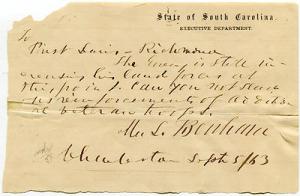 State of South Carolina.
EXECUTIVE DEPARTMENT.
To
Prest Davis - Richmond
The Enemy is still in
creasing his land forces at
this point. Can you not send
us reinforcements of
veteran troops
M. L. Bonham
Charleston Sept 5/63